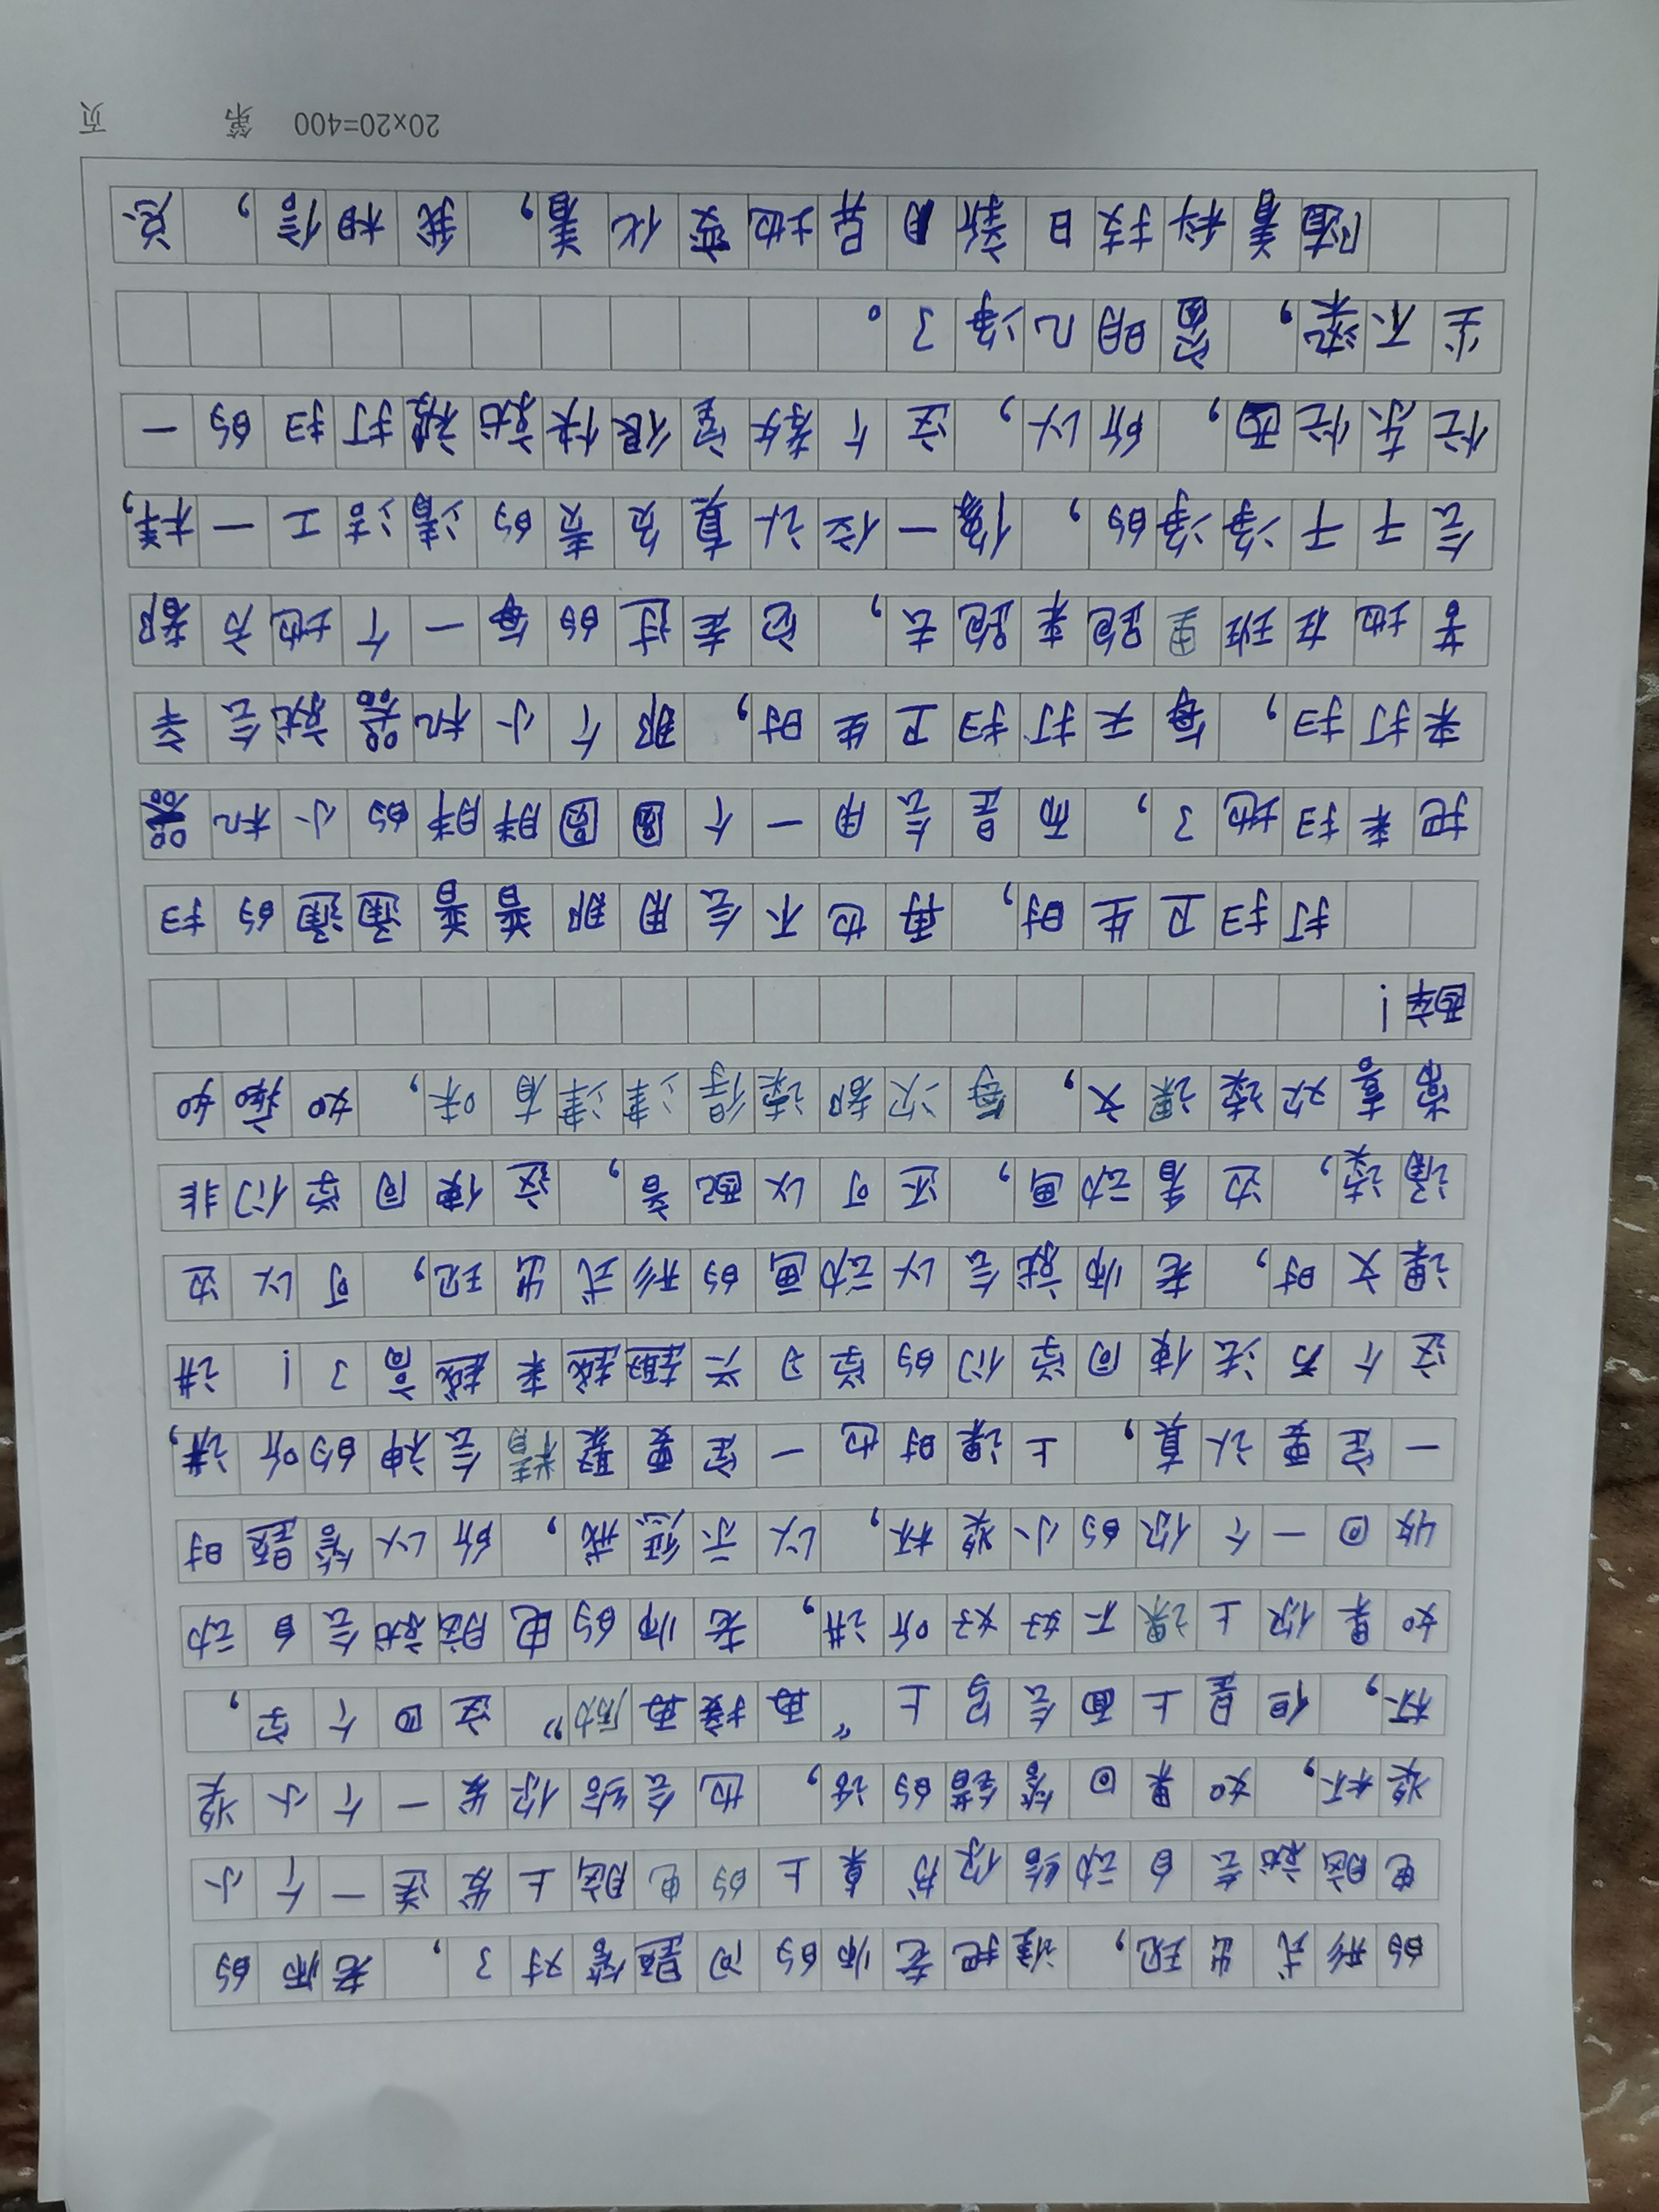 的形式出现，谁把老师的问题答对了，老师的
电脑就会自动给你书桌上的电脑上发送一个小
奖杯，如果回答错的话，也会给你发一个小奖
杯，但是上面会写上“再接再励”这四个字，
如果你上课不好好听讲，老师的电脑就会自动
收回一个你的小奖杯，以示惩戒，所以答题时
一定要认真，上课时也一定要聚精会神的听讲，
这个方法使同学们的学习兴趣越来越高了！讲
课文时，老师就会以动画的形式出现，可以边
诵读，边看动画，还可以配音，这使同学们非
常喜欢读课文，每次都读得津津有味，如痴如
醉！
打扫卫生时，再也不会用那普普通通的扫
把来扫地了，而是会用一个圆圆胖胖的小机器
来打扫，每天打扫卫生时，那个小机器就会辛
苦地在班里跑来跑去，它走过的每一个地方都
会干干净净的，像一位认真负责的清洁工一样，
忙东忙西，所以，这个教室很快就被打扫的一
尘不染，窗明几净了。
随着科技日新月异地变化着，我相信，总
20×20=400 第 页